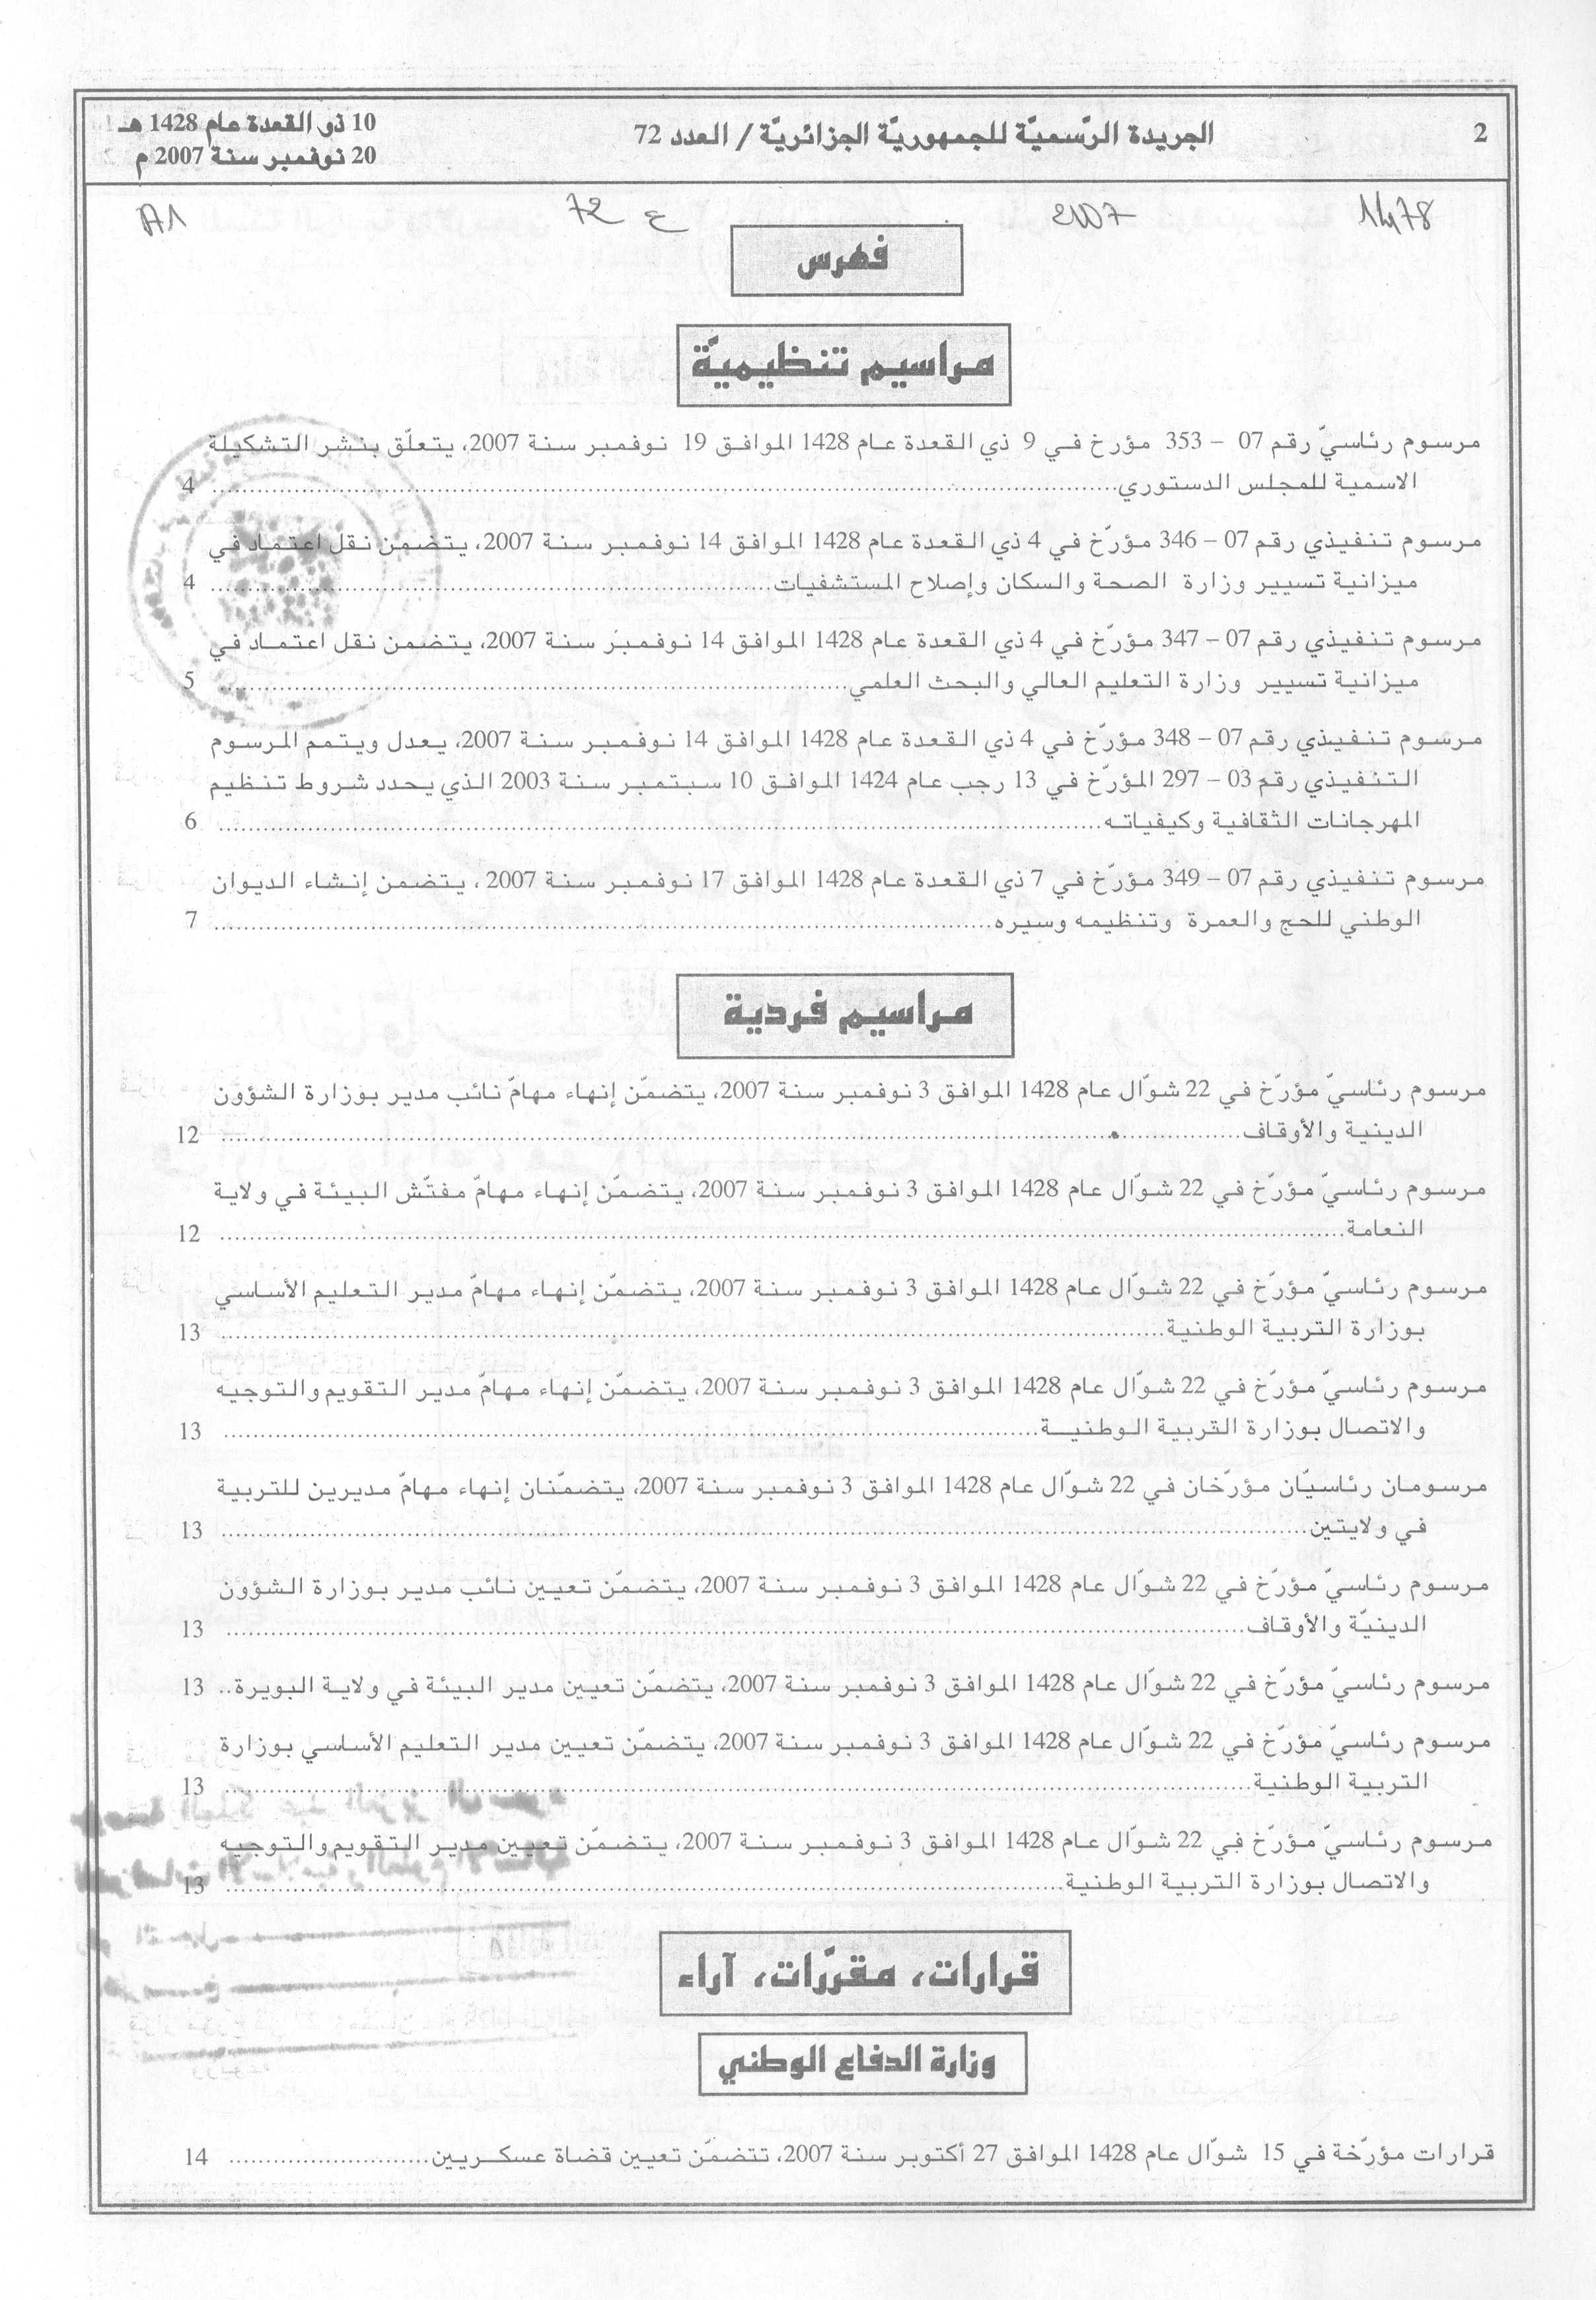 2
الجريدة الرّسميّة للجمهوريّة الجزائريّة / العدد 72
10 ذو القعدة عام 1428 هـ
20 نوفمبر سنة 2007 م
1478 2007 ع 72 A1
فهرس
مراسيم تنظيميّة
مرسوم رئاسيّ رقم 07 – 353 مؤرخ في 9 ذي القعدة عام 1428 الموافق 19 نوفمبر سنة 2007، يتعلّق بنشر التشكيلة
الاسمية للمجلس الدستوري........ 4
مرسوم تنفيذي رقم 07 – 346 مؤرّخ في 4 ذي القعدة عام 1428 الموافق 14 نوفمبر سنة 2007، يتضمن نقل اعتماد في
ميزانية تسيير وزارة الصحة والسكان وإصلاح المستشفيات........ 4
مرسوم تنفيذي رقم 07 – 347 مؤرّخ في 4 ذي القعدة عام 1428 الموافق 14 نوفمبر سنة 2007، يتضمن نقل اعتماد في
ميزانية تسيير وزارة التعليم العالي والبحث العلمي........ 5
مرسوم تنفيذي رقم 07 – 348 مؤرّخ في 4 ذي القعدة عام 1428 الموافق 14 نوفمبر سنة 2007، يعدل ويتمم المرسوم
التنفيذي رقم 03 – 297 المؤرّخ في 13 رجب عام 1424 الموافق 10 سبتمبر سنة 2003 الذي يحدد شروط تنظيم
المهرجانات الثقافية وكيفياته........ 6
مرسوم تنفيذي رقم 07 – 349 مؤرّخ في 7 ذي القعدة عام 1428 الموافق 17 نوفمبر سنة 2007 ، يتضمن إنشاء الديوان
الوطني للحج والعمرة وتنظيمه وسيره........ 7
مراسيم فردية
مرسوم رئاسيّ مؤرّخ في 22 شوّال عام 1428 الموافق 3 نوفمبر سنة 2007، يتضمّن إنهاء مهامّ نائب مدير بوزارة الشؤون
الدينية والأوقاف........ 12
مرسوم رئاسيّ مؤرّخ في 22 شوّال عام 1428 الموافق 3 نوفمبر سنة 2007، يتضمّن إنهاء مهامّ مفتّش البيئة في ولاية
النعامة........ 12
مرسوم رئاسيّ مؤرّخ في 22 شوّال عام 1428 الموافق 3 نوفمبر سنة 2007، يتضمّن إنهاء مهامّ مدير التعليم الأساسي
بوزارة التربية الوطنية........ 13
مرسوم رئاسيّ مؤرّخ في 22 شوّال عام 1428 الموافق 3 نوفمبر سنة 2007، يتضمّن إنهاء مهامّ مدير التقويم والتوجيه
والاتصال بوزارة التربية الوطنيـــة........ 13
مرسومان رئاسيّان مؤرّخان في 22 شوّال عام 1428 الموافق 3 نوفمبر سنة 2007، يتضمّنان إنهاء مهامّ مديرين للتربية
في ولايتين........ 13
مرسوم رئاسيّ مؤرّخ في 22 شوّال عام 1428 الموافق 3 نوفمبر سنة 2007، يتضمّن تعيين نائب مدير بوزارة الشؤون
الدينيّة والأوقاف........ 13
مرسوم رئاسيّ مؤرّخ في 22 شوّال عام 1428 الموافق 3 نوفمبر سنة 2007، يتضمّن تعيين مدير البيئة في ولاية البويرة.. 13
مرسوم رئاسيّ مؤرّخ في 22 شوّال عام 1428 الموافق 3 نوفمبر سنة 2007، يتضمّن تعيين مدير التعليم الأساسي بوزارة
التربية الوطنية........ 13
مرسوم رئاسيّ مؤرّخ في 22 شوّال عام 1428 الموافق 3 نوفمبر سنة 2007، يتضمّن تعيين مدير التقويم والتوجيه
والاتصال بوزارة التربية الوطنية........ 13
قرارات، مقرّرات، آراء
وزارة الدفاع الوطني
قرارات مؤرّخة في 15 شوّال عام 1428 الموافق 27 أكتوبر سنة 2007، تتضمّن تعيين قضاة عسكـريين........ 14